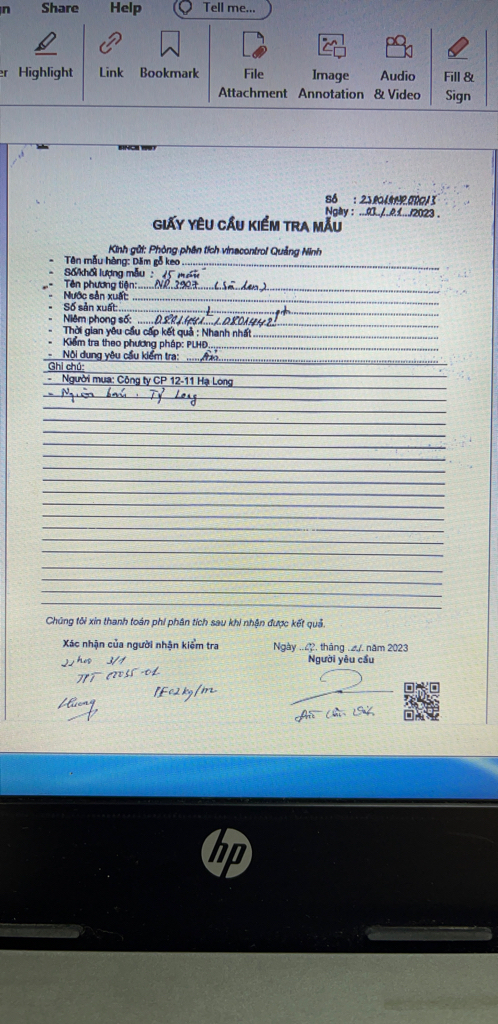 Share Help Tell me...
Highlight Link Bookmark File Attachment Image Annotation Audio & Video Fill & Sign
SINCE 1957
Số :
Ngày : ...03./.01.../2023.
GIẤY YÊU CẦU KIỂM TRA MẪU
Kính gửi: Phòng phân tích vinacontrol Quảng Ninh
- Tên mẫu hàng: Dăm gỗ keo
- Số/khối lượng mẫu : 15 mẫu
- Tên phương tiện: NĐ 3907 (Sà lan)
- Nước sản xuất:
- Số sản xuất:
- Niêm phong số:
- Thời gian yêu cầu cấp kết quả : Nhanh nhất
- Kiểm tra theo phương pháp: PLHĐ
- Nội dung yêu cầu kiểm tra: Ẩm
Ghi chú:
- Người mua: Công ty CP 12-11 Hạ Long
- Người bán : Tý Long
Chúng tôi xin thanh toán phí phân tích sau khi nhận được kết quả.
Xác nhận của người nhận kiểm tra
Ngày tháng năm 2023
Người yêu cầu
3/1
Hương
hp